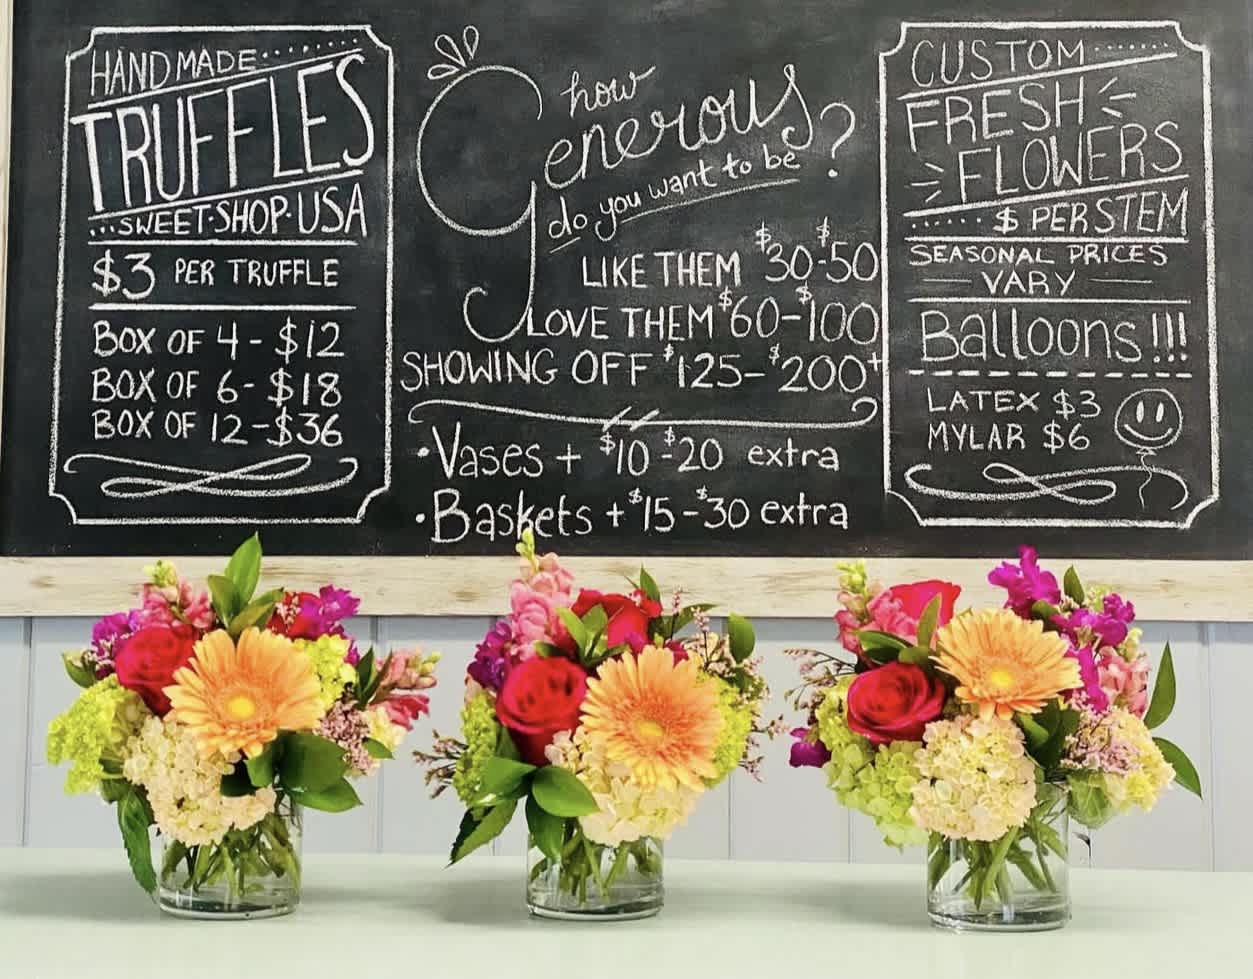 HANDMADE........
TRUFFLES
...SWEET·SHOP·USA
$3 PER TRUFFLE
BOX OF 4 - $12
BOX OF 6 - $18
BOX OF 12 - $36
how
Generous?
do you want to be
LIKE THEM $30-$50
LOVE THEM $60-$100
SHOWING OFF $125-$200+
·Vases + $10-$20 extra
·Baskets + $15-$30 extra
CUSTOM.......
FRESH
FLOWERS
..... $ PER STEM
SEASONAL PRICES
VARY
Balloons!!!
LATEX $3
MYLAR $6